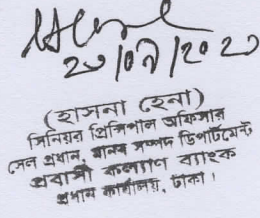 ২০/০৭/২০২০
(হাসনা হেনা)
সিনিয়র প্রিন্সিপাল অফিসার
সেল প্রধান, মানব সম্পদ ডিপার্টমেন্ট
প্রবাসী কল্যাণ ব্যাংক
প্রধান কার্যালয়, ঢাকা।